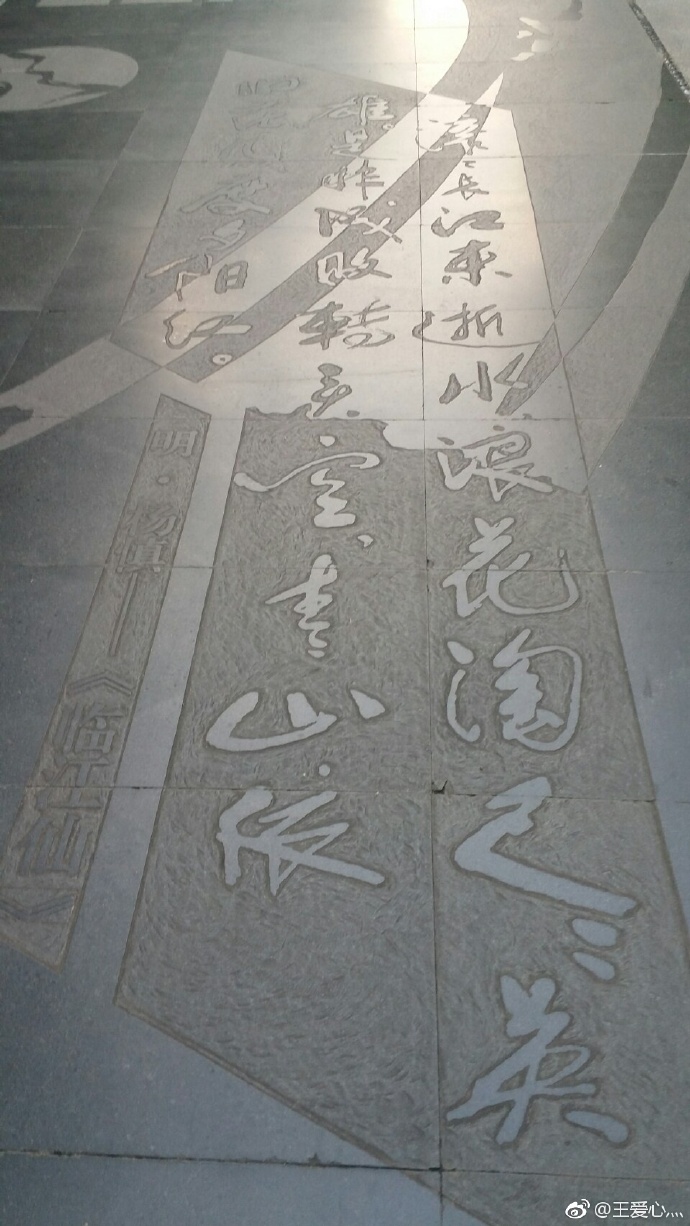 滚滚长江东逝水浪花淘尽英
雄是非成败转头空青山依
旧在几度夕阳红。
明·杨慎——《临江仙》
@王爱心,,,,